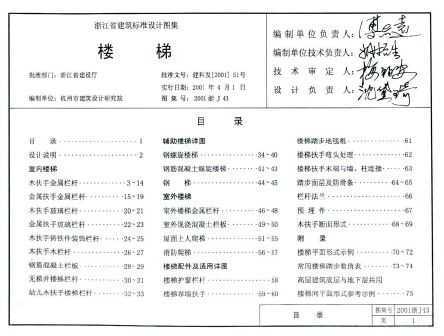 浙江省建筑标准设计图集
楼 梯
批准部门：浙江省建设厅
批准文号：建科发[2001]51号
实行日期：2001年4月1日
编制单位：杭州市建筑设计研究院
图集号：2001浙J43
编制单位负责人：
编制单位技术负责人：
技术审定人：
设计负责人：
目 录
目 录 1
设计说明 2
室内楼梯
木扶手金属栏杆 3~14
金属扶手金属栏杆 15~19
木扶手玻璃栏杆 20~21
金属扶手玻璃栏杆 22~23
木扶手铸铁件装饰栏杆 24~25
木扶手木栏杆 26~27
钢筋混凝土栏板 28~29
无梯井楼梯栏杆 30~31
幼儿木扶手楼梯栏杆 32~33
辅助楼梯详图
钢螺旋楼梯 34~40
钢筋混凝土螺旋楼梯 41~43
钢 梯 44~45
室外楼梯
室外楼梯金属栏杆 46~48
室外现浇混凝土栏板 49~50
屋面上人爬梯 51~55
消防爬梯 56~57
楼梯配件及通用详图
楼梯靠墙扶手 59~60
楼梯踏步地毯棍 61
楼梯扶手弯头处理 62
楼梯扶手末端与墙、柱连接 63
踏步面层及防滑条 64~65
栏杆法兰 66
预 埋 件 67
木扶手断面形式 68~69
附 录
楼梯平面形式示例 70~72
常用楼梯踏步数角表 73~74
高层建筑底层与地下层共用
楼梯间平面形式参考示例 75
目 录
图集号 2001浙J43
页 1